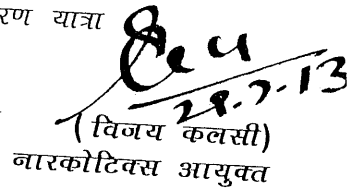 रण यात्रा
28.7.13
( विजय कलसी)
नारकोटिक्स आयुक्त